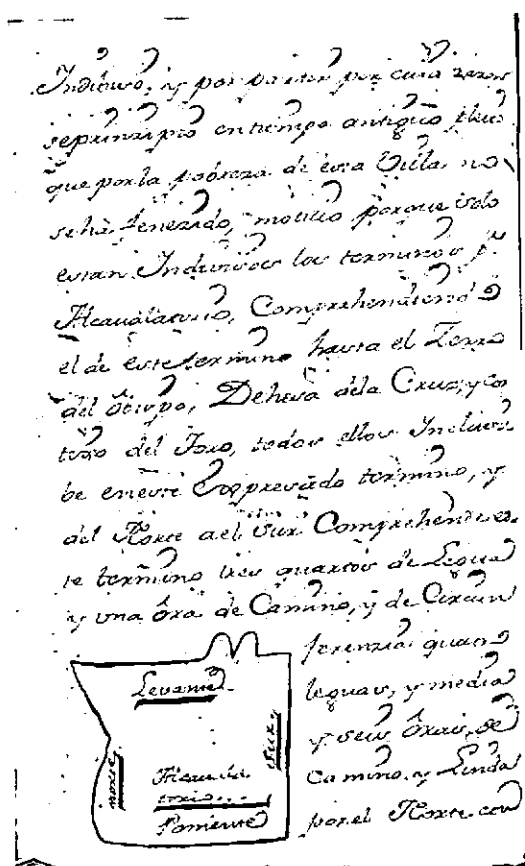 Indiviso, y por partir por cuia razon
seprinzipio entiempo antiguo pleito
que porla pobreza de esta Villa no
seha fenezido, motivo porque solo
estan Indivisos los terminos pr.
Alcavalatorio, Comprehendiendo
el de este termino hasta el Zerro
del Obispo, Dehesa dela Cruz, y Co
torro del Toro, todos ellos Inclusi
be eneste Expresado termino, y
del Norte ael Sur Comprehende es
te termino tres quartos de Legua
y una Ora de Camino, y de Circun
ferenzia quatro
leguas, y media
y seis Oras, de
Camino, y Linda
por el Norte con
Levante
Sur
Norte
Alcavala
torio
Poniente